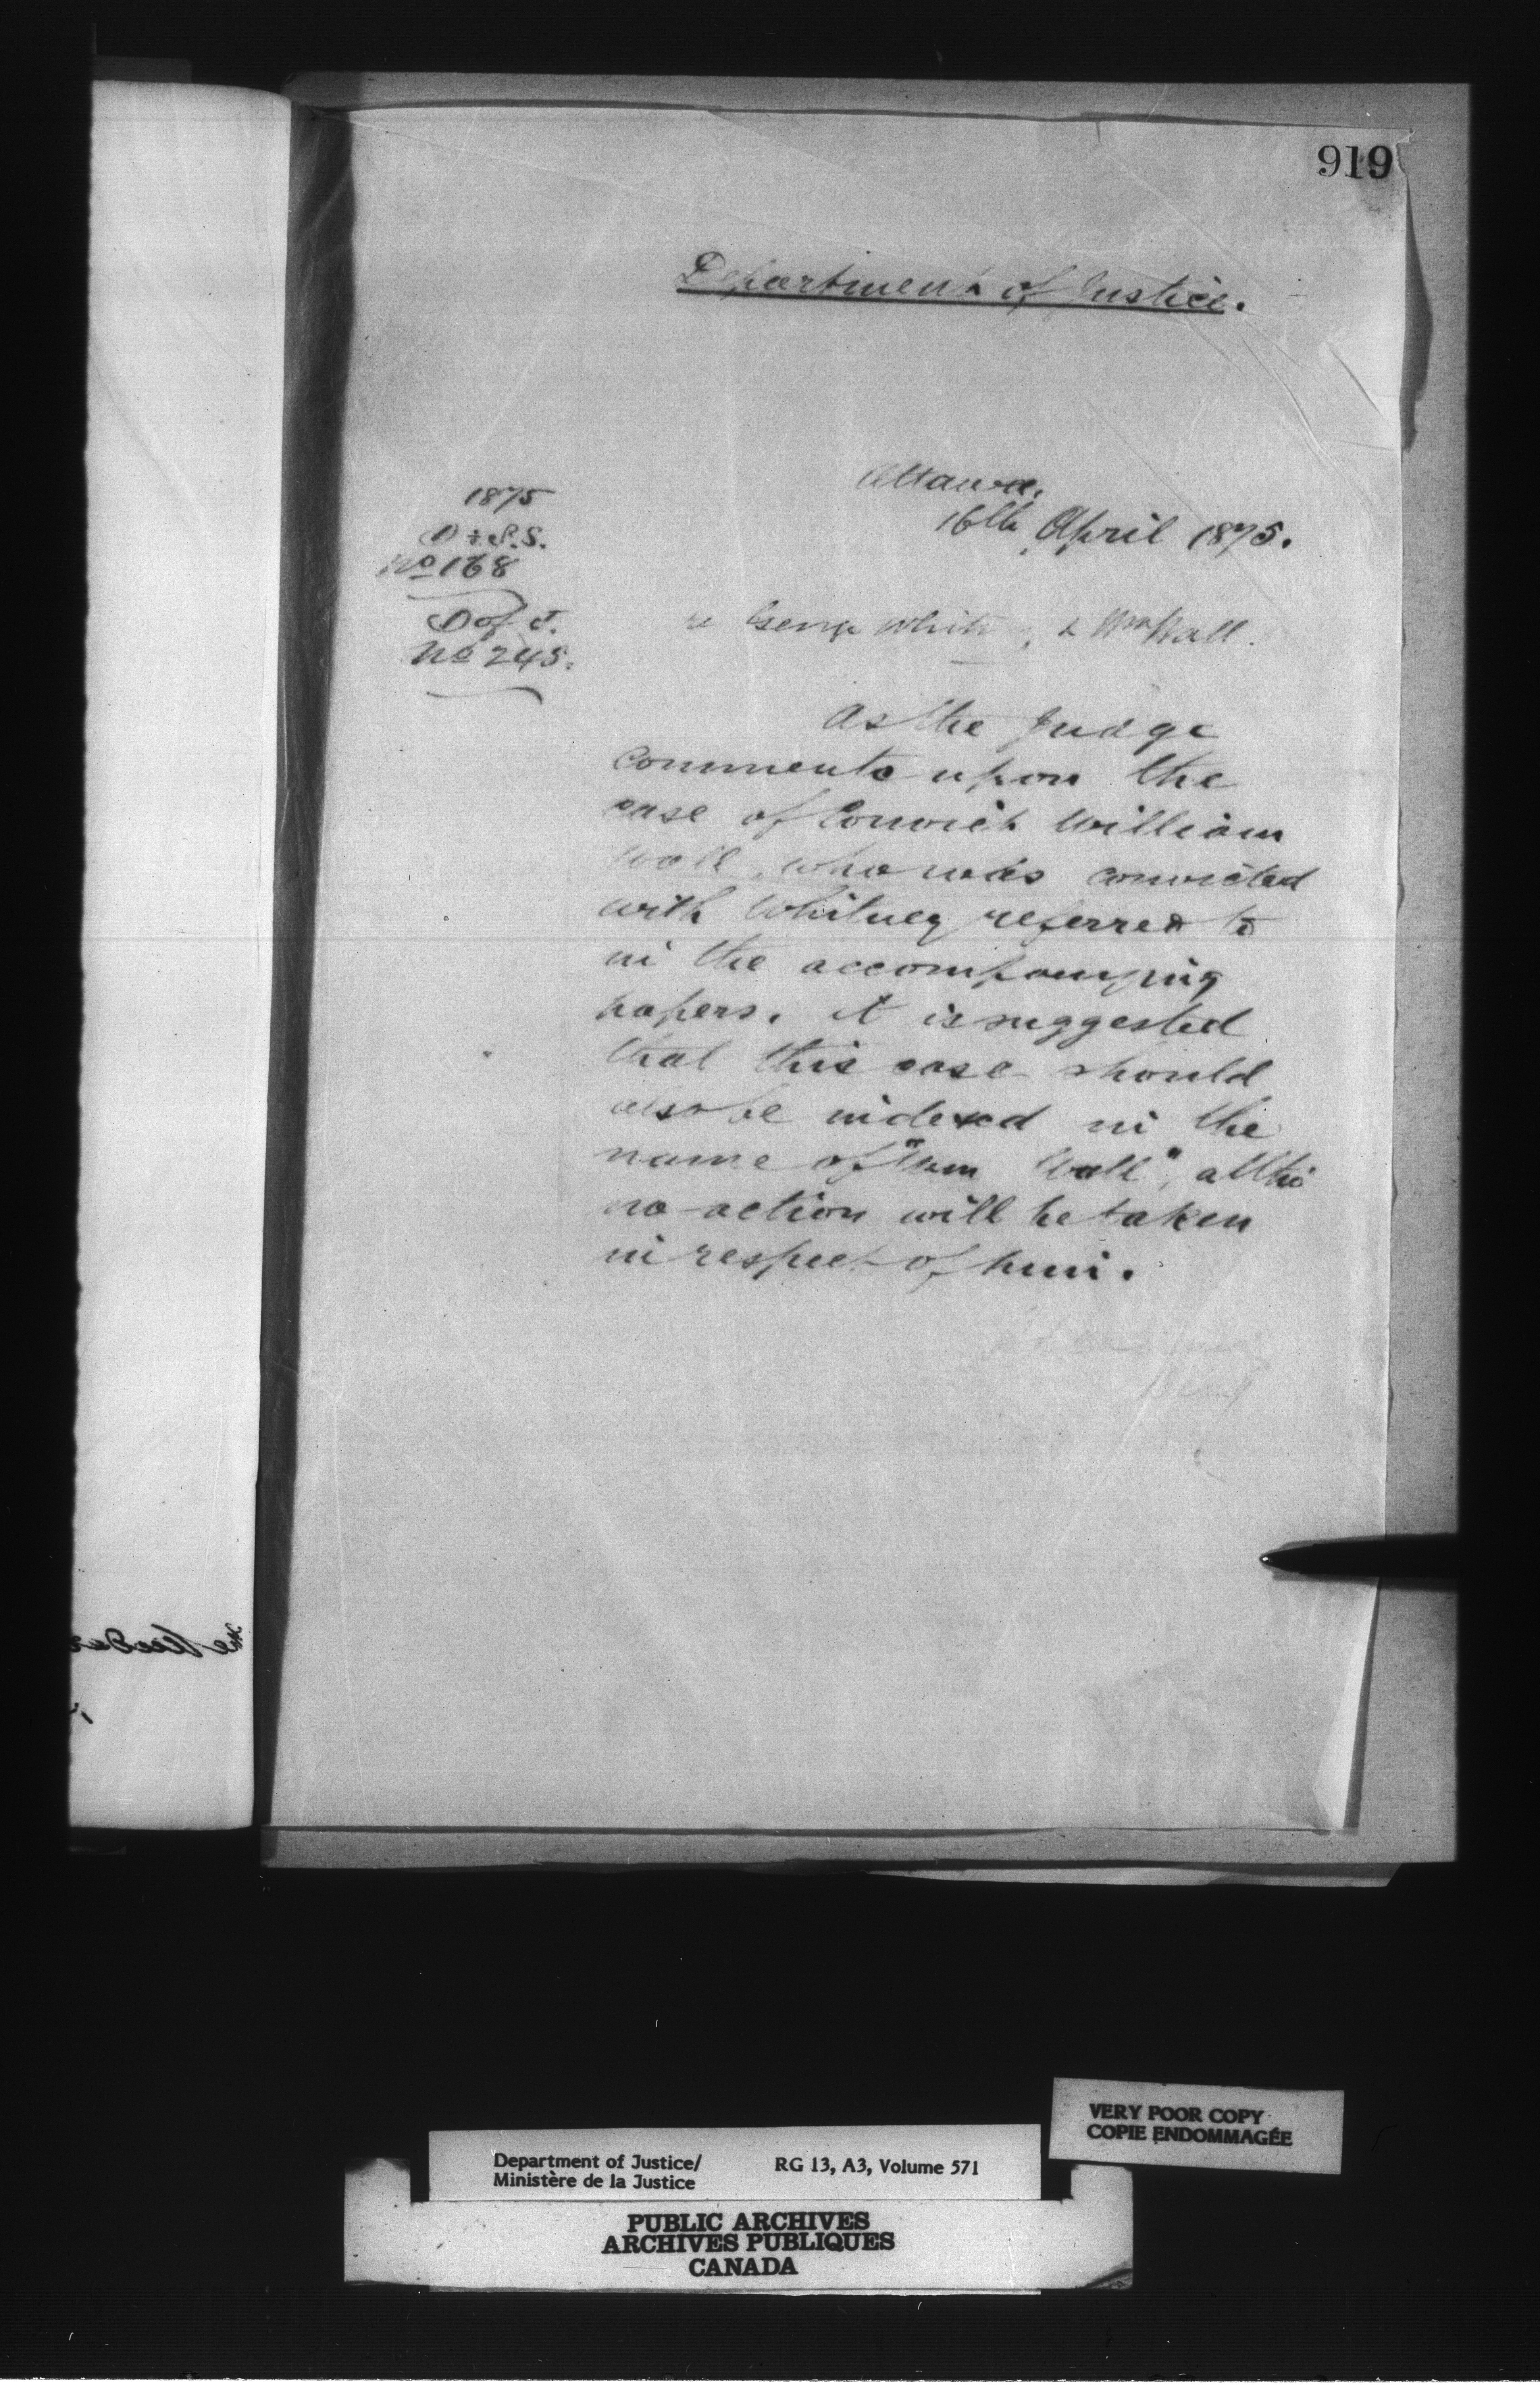 919
Department of Justice.
Ottawa.
16th April 1875.
1875
D of S.S.
No 168
D of J.
No 245.
re George White & Wm Wall.
As the Judge
comments upon the
case of Convict William
Wall, who was convicted
with Whitney referred to
in the accompanying
papers. it is suggested
that this case should
also be indexed in the
name of "Wm Wall", altho
no action will be taken
in respect of him.
VERY POOR COPY
COPIE ENDOMMAGÉE
Department of Justice/ RG 13, A3, Volume 571
Ministère de la Justice
PUBLIC ARCHIVES
ARCHIVES PUBLIQUES
CANADA